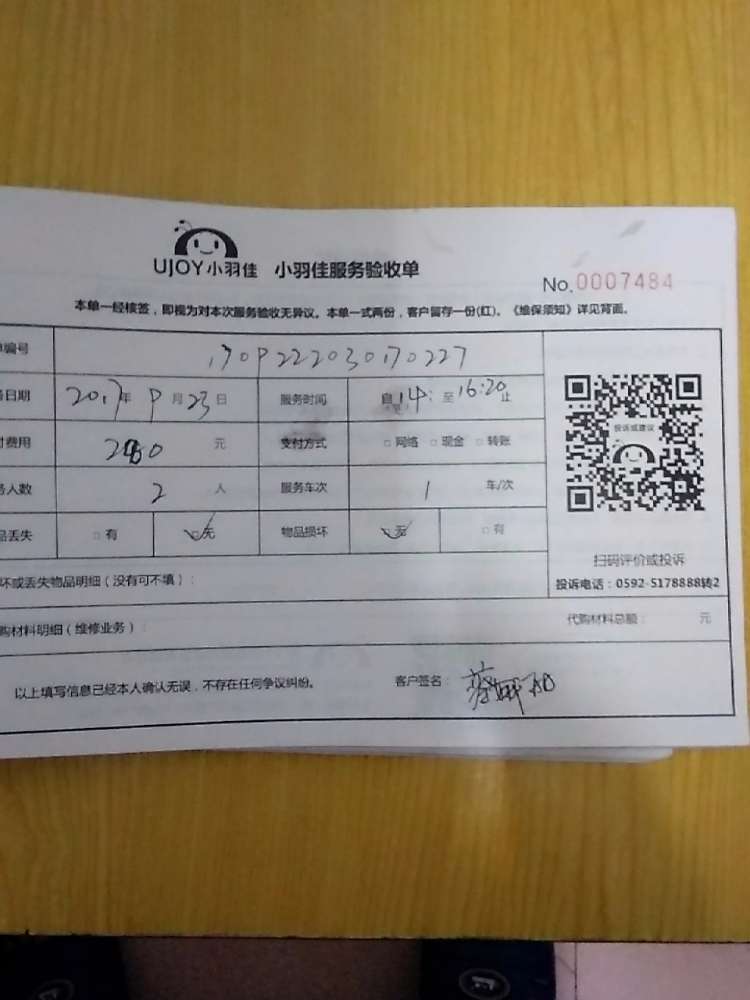 UJOY小羽佳 小羽佳服务验收单
No.0007484
本单一经核签，即视为对本次服务验收无异议。本单一式两份，客户留存一份(红)。《维保须知》详见背面。
编号 170922203070227
日期 2017年 9月23日 服务时间 自14: 至16:20止
费用 元 支付方式 □网络 □现金 □转账
人数 2 人 服务车次 1 车/次
品丢失 □有 □无 物品损坏 □无 □有
投诉或建议
扫码评价或投诉
投诉电话：0592-5178888转2
坏或丢失物品明细（没有可不填）：
购材料明细（维修业务）：
代购材料总额： 元
以上填写信息已经本人确认无误，不存在任何争议纠纷。 客户签名：